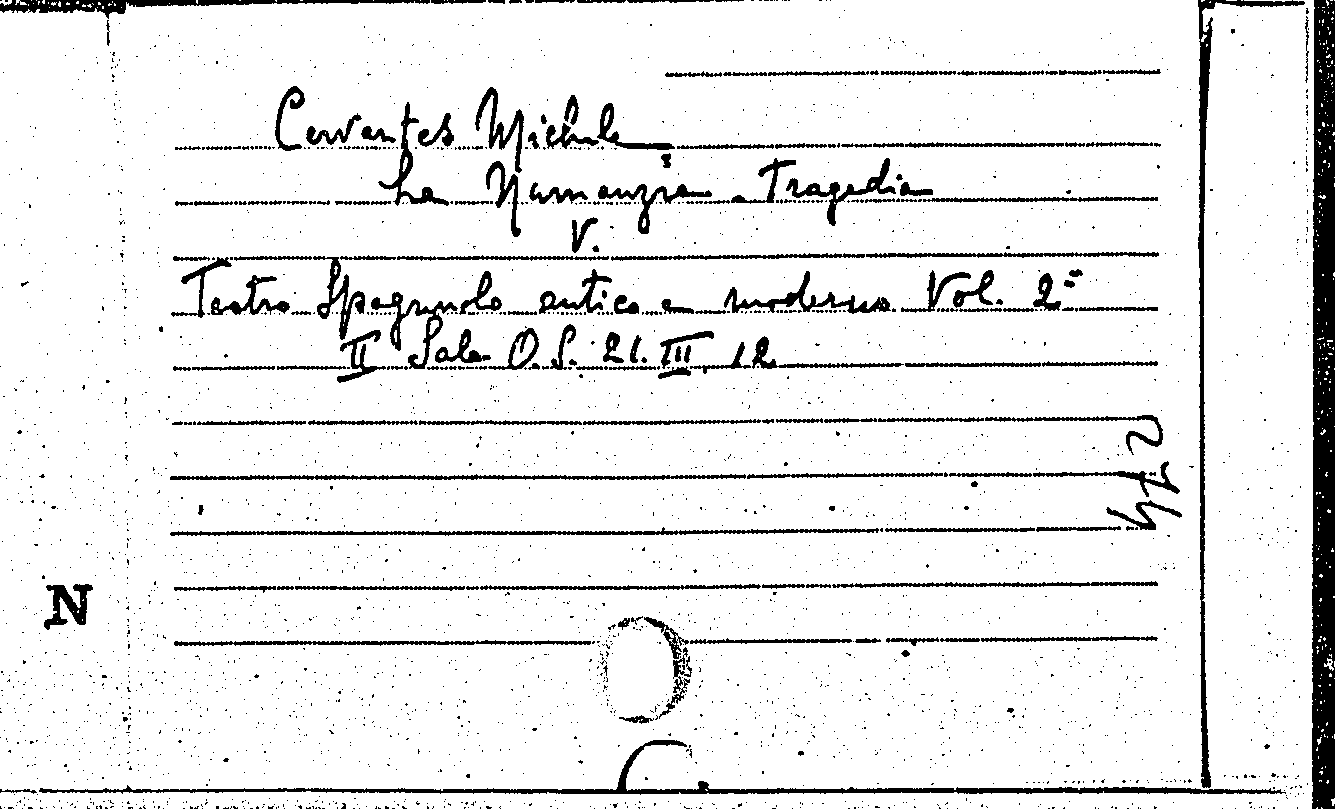 Cervantes Michele
La Numanzia - Tragedia
V.
Teatro Spagnuolo antico e moderno Vol. 2º
II Sala O.S. 21. III. 12
N
C.